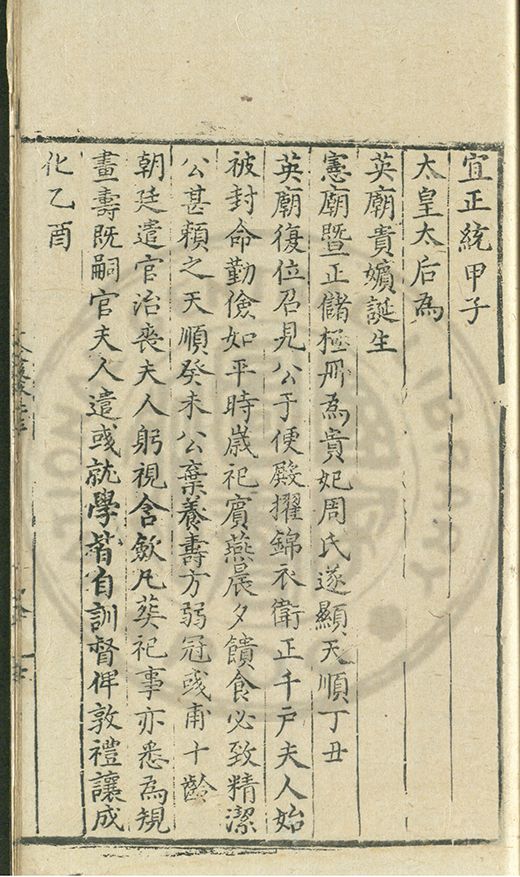 宜正統甲子
太皇太后為
英廟貴嬪誕生
憲廟暨正儲極冊為貴妃周氏遂顯天順丁丑
英廟復位召見公于便殿擢錦衣衛正千戶夫人始
被封命勤儉如平時歲祀賓燕晨夕饋食必致精潔
公甚賴之天順癸未公棄養壽方弱冠彧甫十齡
朝廷遣官治喪夫人躬視含斂凡葬祀事亦悉為規
畫壽既嗣官夫人遣彧就學皆自訓督俾敦禮讓成
化乙酉